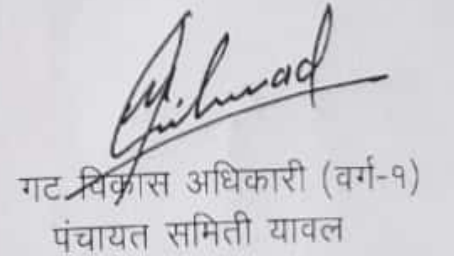 गट विकास अधिकारी (वर्ग-१)
पंचायत समिती यावल